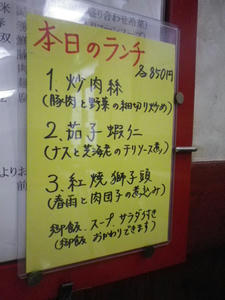 本日のランチ
各850円
1. 炒肉絲
(豚肉と野菜の細切り炒め)
2. 茄子蝦仁
(ナスと芝海老のチリソース煮)
3. 紅焼獅子頭
(春雨と肉団子の煮込み)
御飯.スープ サラダ付き
(御飯 おかわりできます)